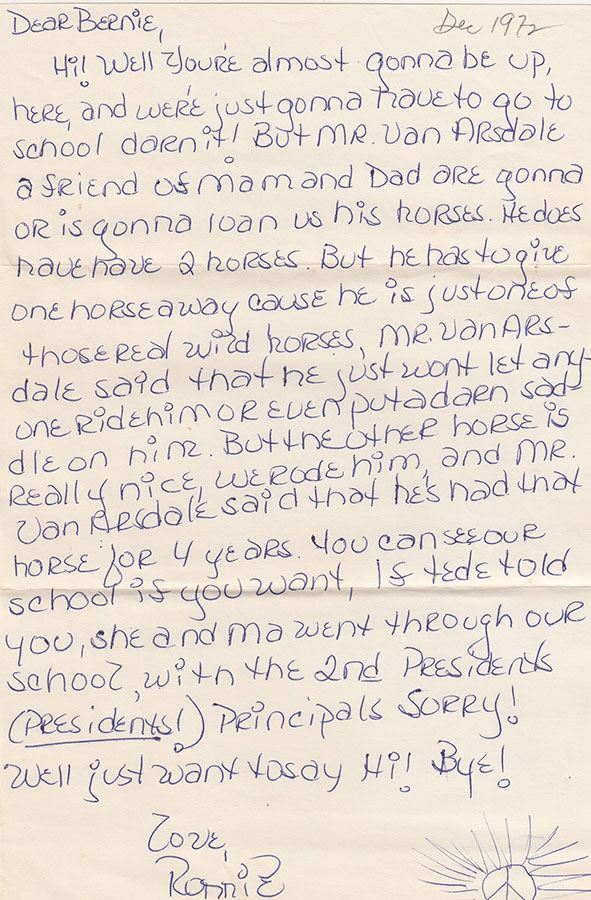 Dec 1972
Dear Bernie,
Hi! Well You're almost gonna be up,
here, and we're just gonna have to go to
school darn it! But Mr. Van Arsdale
a friend of mam and Dad are gonna
or is gonna loan us his horses. He does
have have 2 horses. But he has to give
one horse away cause he is just one of
those real wild horses, Mr. Van Ars-
dale said that he just wont let any-
one ride him or even put a darn sad-
dle on him. But the other horse is
really nice, we rode him, and Mr.
Van Arsdale said that he's had that
horse for 4 years. You can see our
school if you want, If tede told
you, she and ma went through our
school, with the 2nd Presidents
(Presidents!) Principals Sorry!
Well just want to say Hi! Bye!
Love,
Ronnie